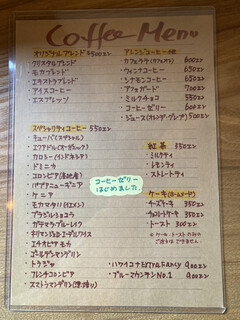 Coffee Menu
オリジナルブレンド ¥500エン
クリスタルブレンド
モカブレンド
エキストラブレンド
アイスコーヒー
エスプレッソ
スペシャリティコーヒー 550エン
キューバ(スペシャル)
エクアドル(オーガニック)
カロシー(インドネシア)
ドミニカ
コロンビア
パプアニューギニア
ケニア
モカマタリ(イエメン)
ブラジルショコラ
ガテマラ・ブルーレイク
キリマンジャロ・エーデルワイス
エチオピアモカ
ゴールデンマンデリン
トラジャ
フレンチコロンビア
スマトラマンデリン(深炒り)
アレンジコーヒー他
カフェラテ(カフェオレ) 600エン
ウィンナコーヒー 650エン
シナモンコーヒー 650エン
アフォガード 700エン
ミルクチョコ 550エン
コーヒーゼリー 600エン
ジュース(オレンジ・グレープ) 500エン
紅茶 550エン
ミルクティ
レモンティ
ストレートティ
コーヒーゼリー
はじめました。
ケーキ(ホームメード)
チーズケーキ 350エン
チョコレートケーキ 350エン
トースト 300エン
※ケーキ・トーストのみの
ご注文はできません。
ハワイコナ EXTRA Fancy 900エン
ブルーマウンテン No.1 900エン